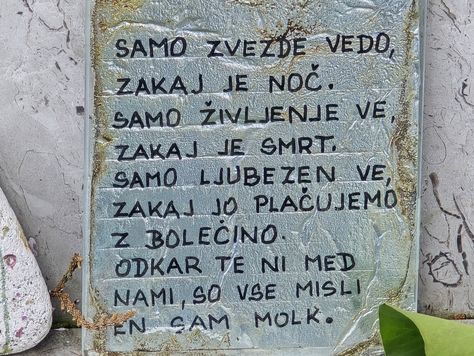 SAMO ZVEZDE VEDO,
ZAKAJ JE NOČ.
SAMO ŽIVLJENJE VE,
ZAKAJ JE SMRT.
SAMO LJUBEZEN VE,
ZAKAJ JO PLAČUJEMO
Z BOLEČINO.
ODKAR TE NI MED
NAMI, SO VSE MISLI
EN SAM MOLK.